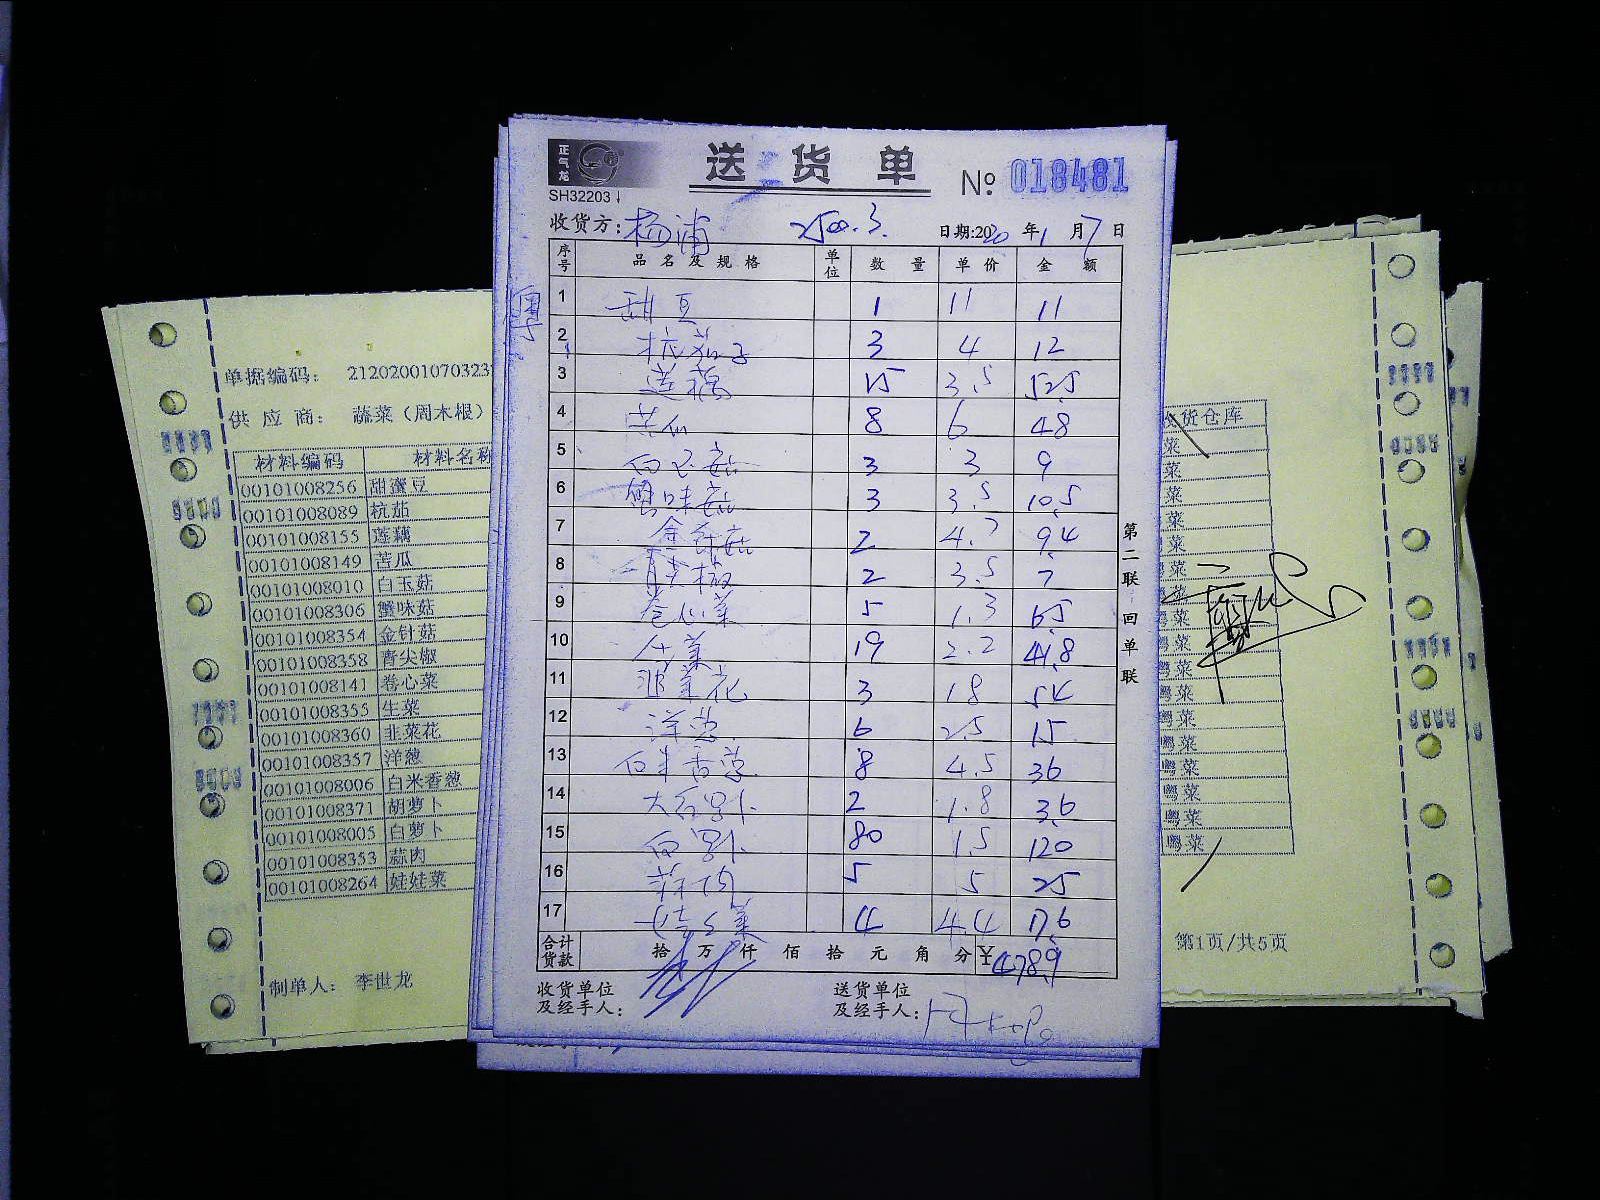 正气龙
送货单
SH32203
№ 018481
收货方: 杨浦 2500.3. 日期:2020年1月7日
序号 品名及规格 单位 数量 单价 金额
1 甜豆 1 11 11
2 杭茄子 3 4 12
3 莲藕 15 3.5 52.5
4 苦瓜 8 6 48
5 白玉菇 3 3 9
6 蟹味菇 3 3.5 10.5
7 金针菇 2 4.7 9.4
8 青尖椒 2 3.5 7
9 卷心菜 5 1.3 6.5
10 生菜 19 2.2 41.8
11 韭菜花 3 18 54
12 洋葱 6 2.5 15
13 白米香葱 8 4.5 36
14 2 1.8 3.6
15 白卜 80 1.5 120
16 蒜肉 5 5 25
17 娃娃菜 4 4.4 17.6
合计货款 拾万仟佰拾元角分 ¥478.9
收货单位及经手人:
送货单位及经手人:
第二联 回单联
粤
单据编码: 2120200107032
供应商: 蔬菜(周木根)
材料编码 材料名称
00101008256 甜蜜豆
00101008089 杭茄
00101008155 莲藕
00101008149 苦瓜
00101008010 白玉菇
00101008306 蟹味菇
00101008354 金针菇
00101008358 青尖椒
00101008141 卷心菜
00101008355 生菜
00101008360 韭菜花
00101008357 洋葱
00101008006 白米香葱
00101008371 胡萝卜
00101008005 白萝卜
00101008353 蒜肉
00101008264 娃娃菜
制单人: 李世龙
货仓库
菜
菜
菜
菜
菜
菜
菜
粤菜
粤菜
粤菜
粤菜
粤菜
粤菜
粤菜
粤菜
粤菜
粤菜
第1页/共5页